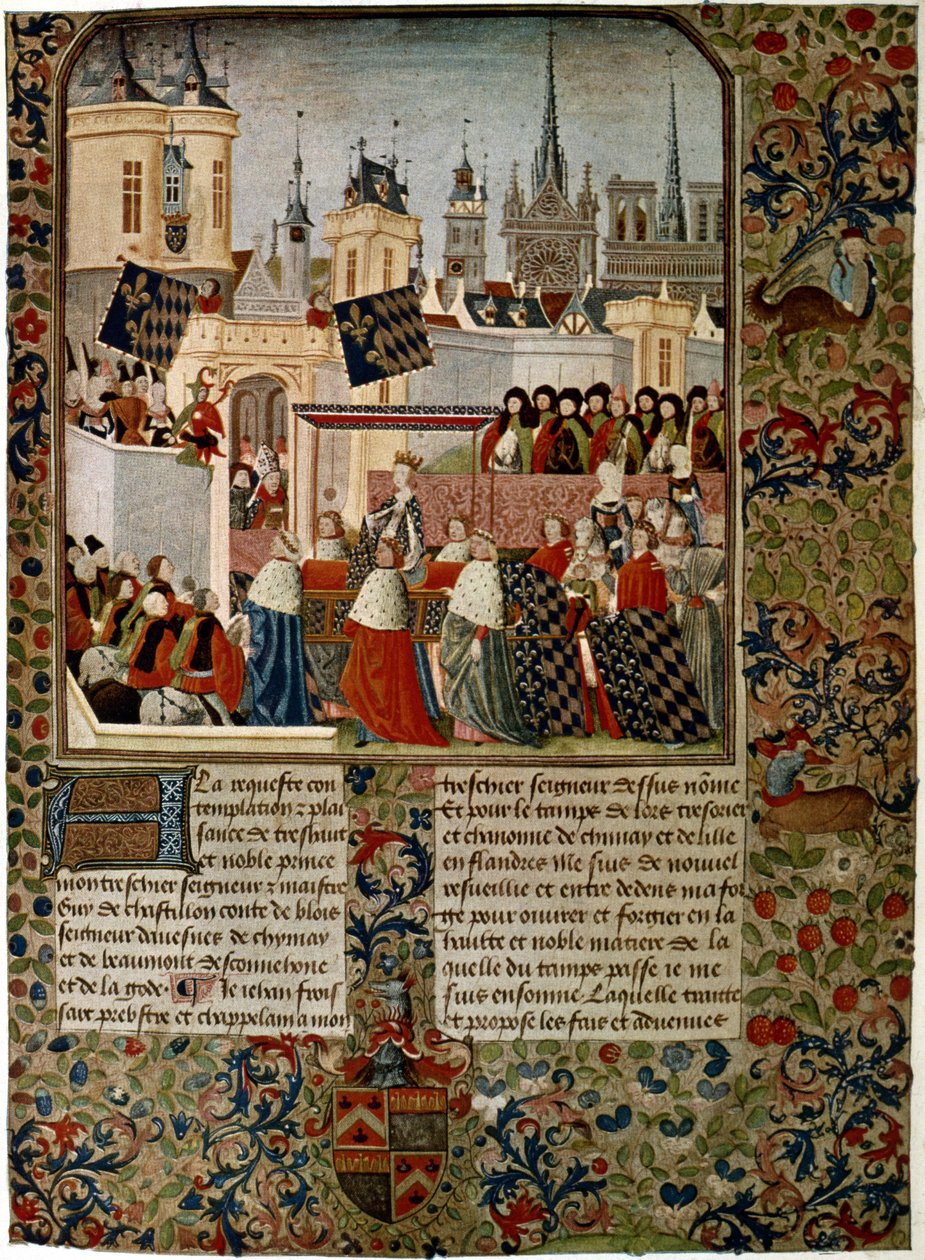 A La requeste con
templation z plai
sance de treshaut
et noble prince
mon treschier seigneur z maistre
Guy de chastillon conte de blois
seigneur davesnes de chymay
et de beaumont de sconnehove
et de la gode. Je iehan frois
sart prebstre et chappelain a mon
treschier seigneur dessus nõme
Et pour le tamps de lors tresorier
et chanonne de chymay et de lille
en flandres Me suis de nouvel
resueillie et entre dedens ma for
ge pour ouvrer et forgier en la
haulte et noble matiere de la
quelle du tamps passe ie me
suis ensonnie. Laquelle traitte
et propose les fais et advenues